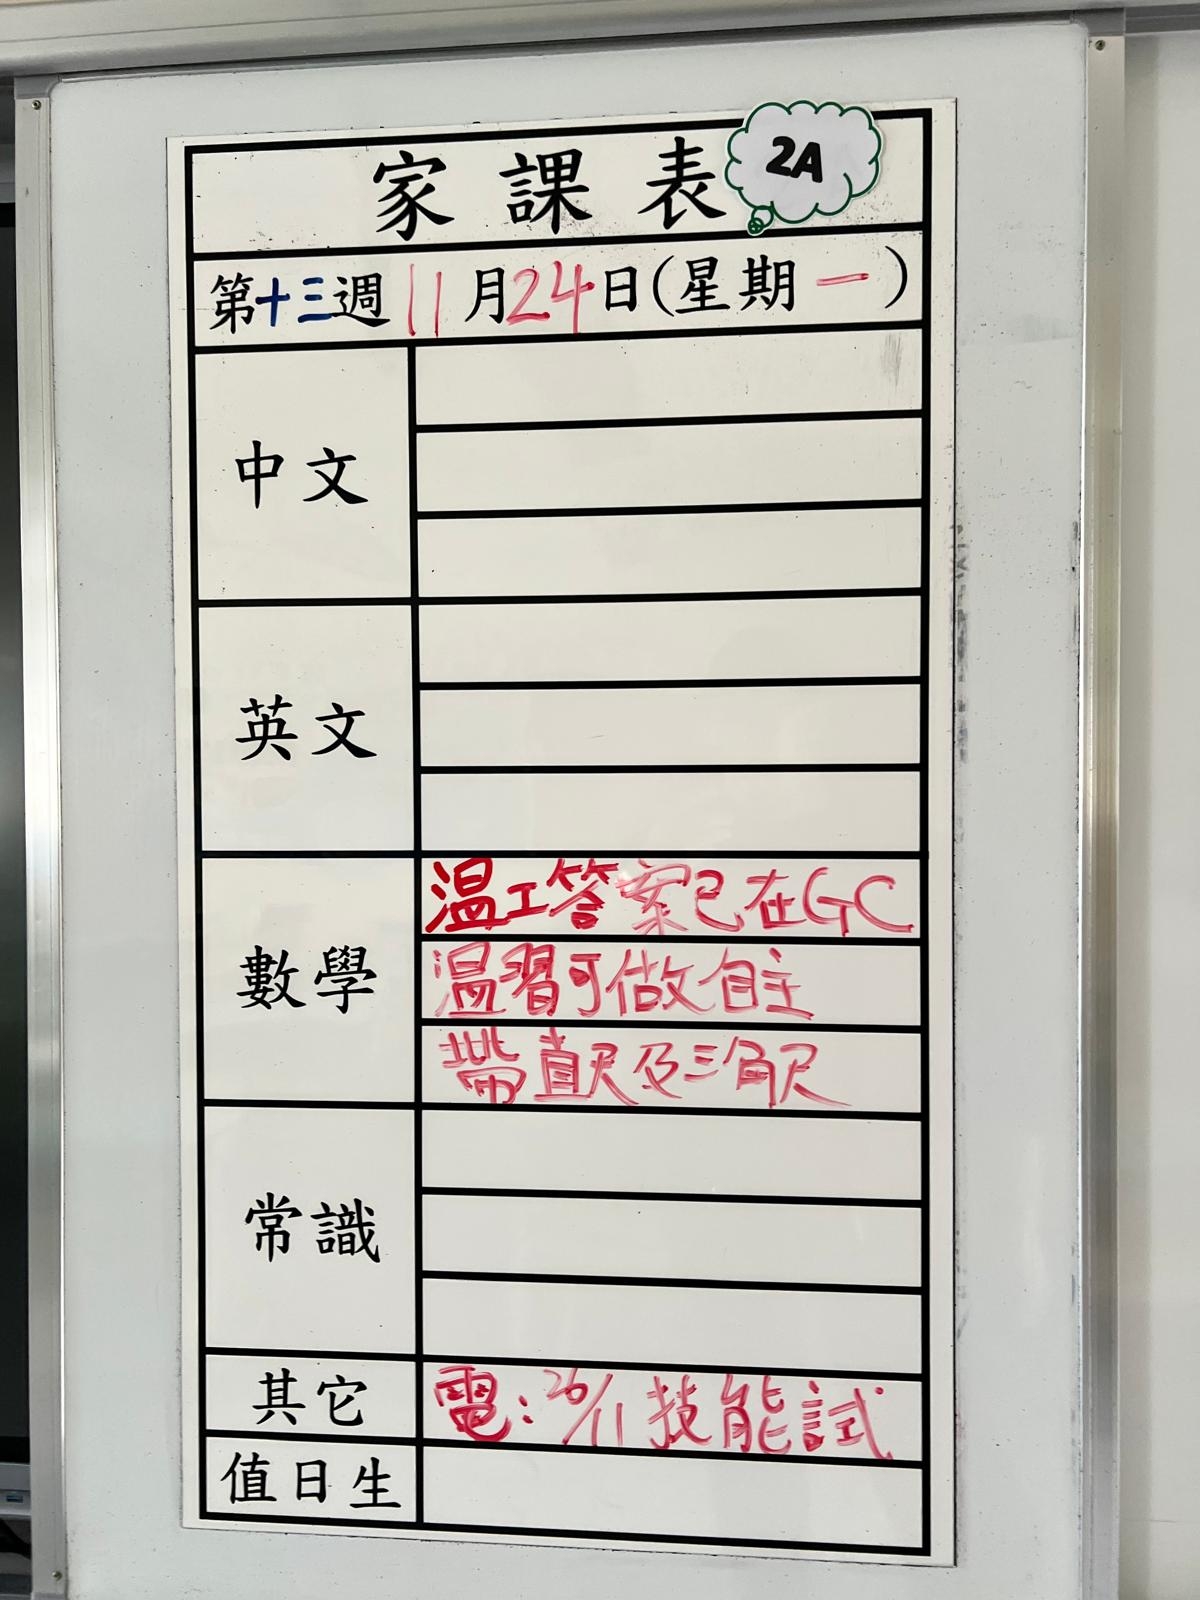 家課表 2A
第十三週 11月24日(星期一)
中文
英文
數學
溫工答案已在GC
溫習可做自主
帶直尺及三角尺
常識
其它
電：26/11 技能試
值日生